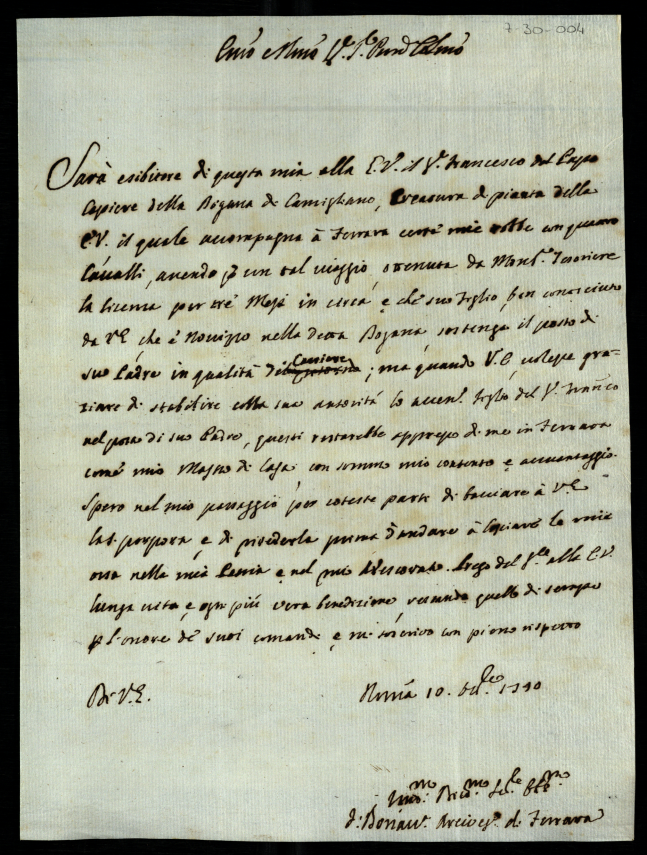 7-30-004
Sarà esibitore di questa mia alla E.V. il Sr. Francesco del Papa
Capiere della Dogana di Camigliano, Creatura e pianta della
E.V. il quale accompagna à Ferrara certe mie robbe con quattro
Cavalli, avendo p un tal viaggio, ottenuta da Monsr. Tesoriere
la licenza per trè Mesi in circa e che suo figlio, ben conosciuto
da V.E. che è Novizio nella detta Dogana, sostenga il posto di
suo Padre in qualità di Cassiere; ma quando V.E. volesse gra-
ziare di stabilire colla sua autorità lo accen. figlio del Sr. Franco
nel posto di suo Padre, questi restarebbe appresso di me in Ferrara
come mio Mastro di Casa con sommo mio contento e avvantaggio.
Spero nel mio passaggio per coteste parti di bacciare à V.E.
la S. porpora e di rivederla prima d'andare à lasciare le mie
ossa nella mia Patria e nel mio Arcivescovato. Prego dal Sre alla E.V.
lunga vita e ogni più vera benedizione, restando quello di sempre
p l'onore de suoi comandi e mi soscrivo con pieno rispetto
Di V.E.
Roma 10. 1740
d: Bonav. Arcives. di Ferrara